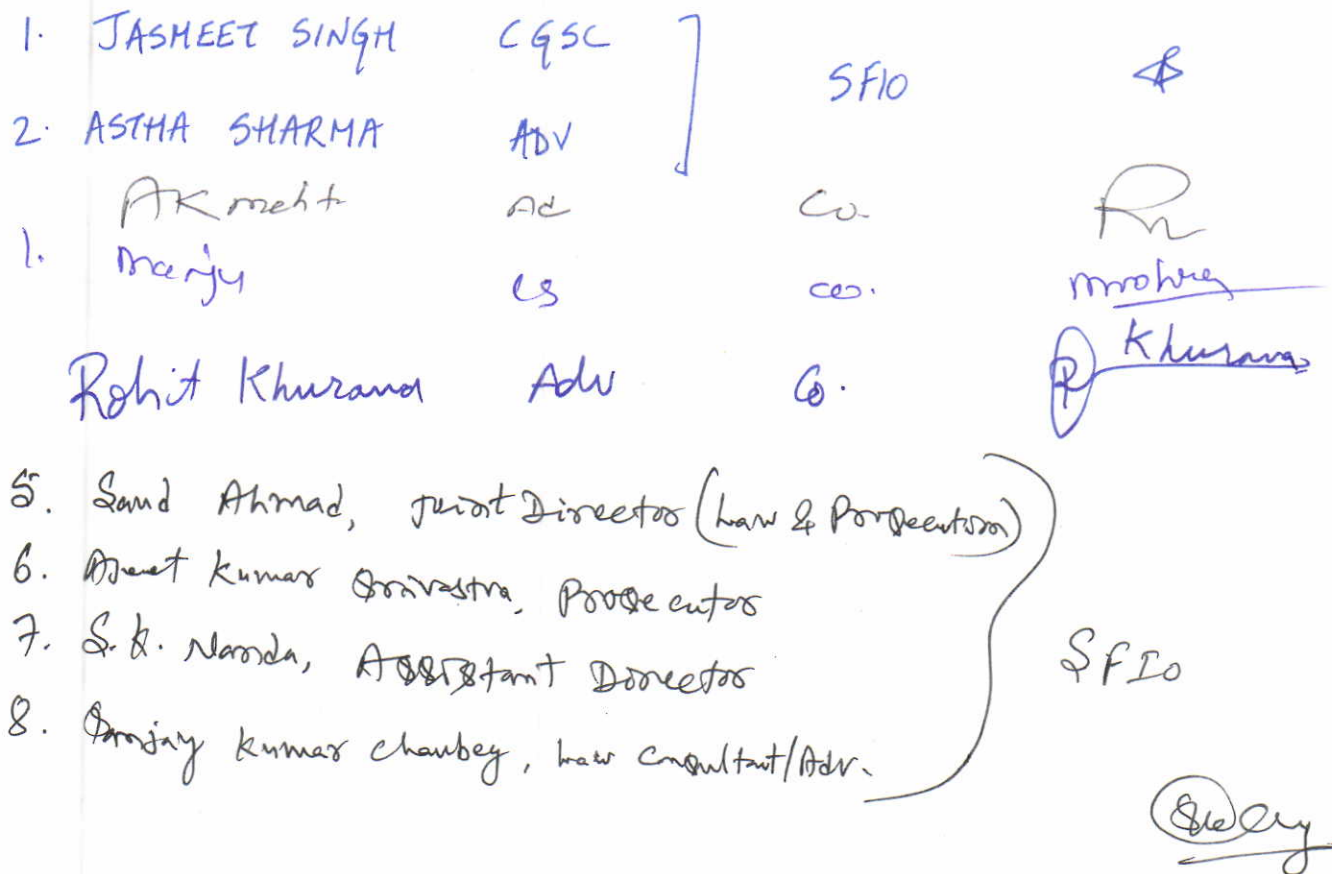 1. JASMEET SINGH CGSC SFIO
2. ASTHA SHARMA ADV
AK meht Ad Co.
1. Manju CS co.
Rohit Khurana Adv Co. Khurana
5. Saud Ahmad, Joint Director (Law & Prosecution)
6. Kumar Srivastva, Prosecutor
7. S.K. Nanda, Assistant Director SFIO
8. Sanjay Kumar Chaubey, Law Consultant/Adv.